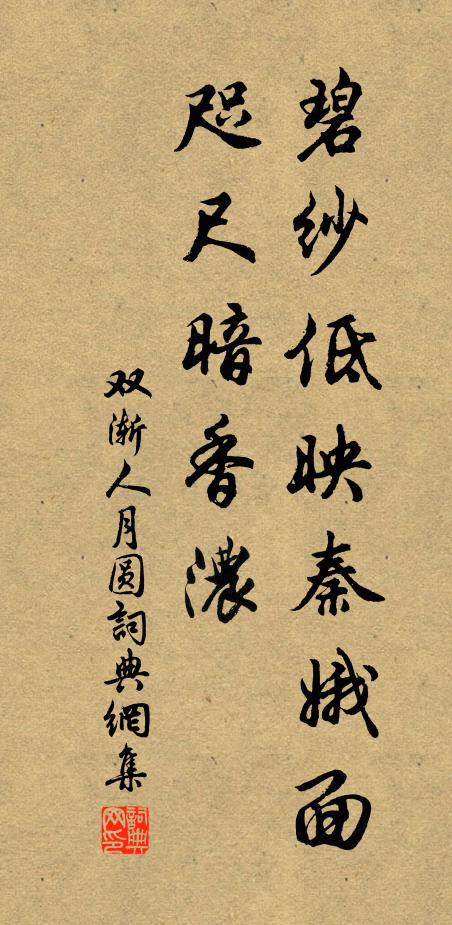 碧纱低映秦娥面
咫尺暗香濃
双渐人月圆詞典網集
詞典网印